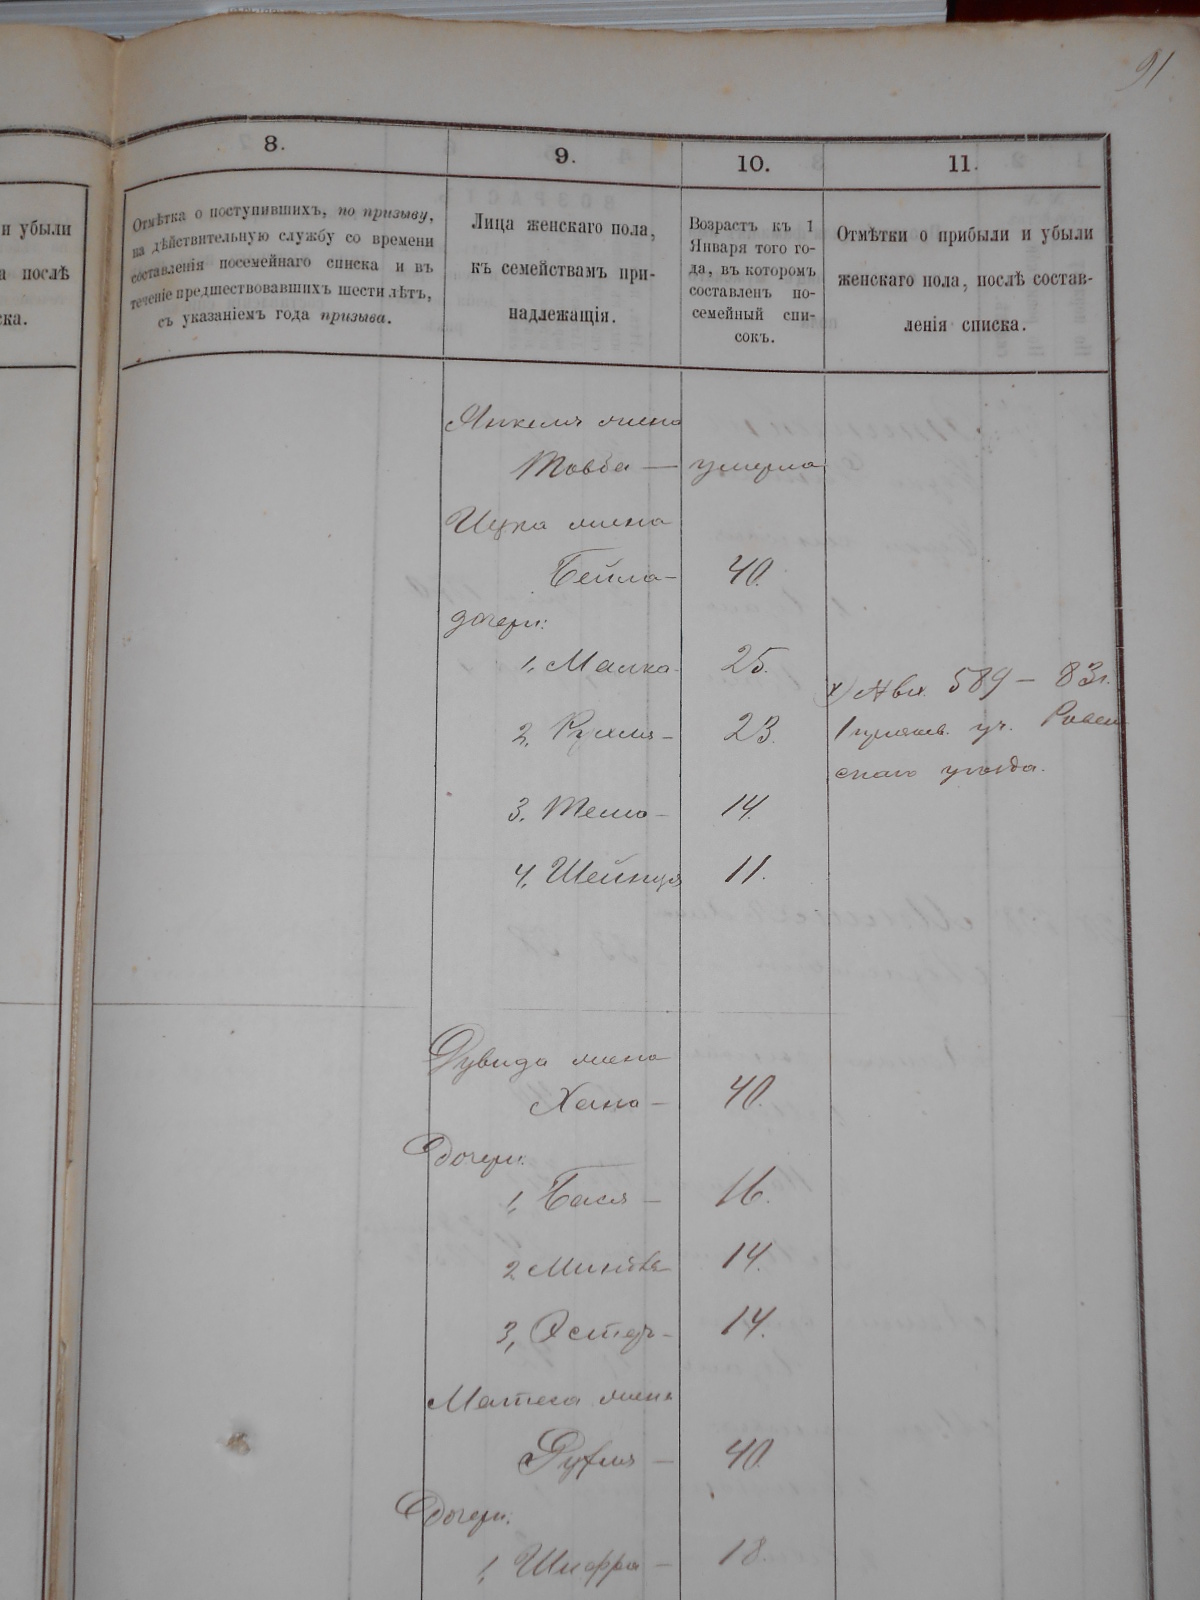 91
8.
9.
10.
11.
и убыли
а послѣ
ска.
Отмѣтка о поступившихъ, по призыву,
на дѣйствительную службу со времени
составленія посемейнаго списка и въ
теченіе предшествовавшихъ шести лѣтъ,
съ указаніемъ года призыва.
Лица женскаго пола,
къ семействамъ при-
надлежащія.
Возрастъ къ 1
Января того го-
да, въ которомъ
составленъ по-
семейный спи-
сокъ.
Отмѣтки о прибыли и убыли
женскаго пола, послѣ состав-
ленія списка.
Янкеля жена
Товба — умерла
Ицка жена
Бейла — 40.
дочери:
1. Малка — 25.
2. Рухля — 23.
3. Темо — 14.
4. Шейндля 11.
х) 589 — 83г.
1 уч. Ровен
скаго уѣзда.
Дувида жена
Хана — 40.
Дочери:
1. Бася — 16.
2 14.
3, Эстеръ — 14.
Матеса жена
Рухля — 40.
Дочери:
1. Шифра — 18.